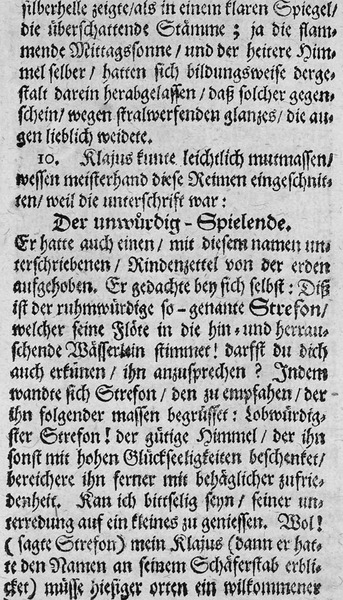 silberhelle zeigte/als in einem klaren Spiegel/
die überschattende Stämme; ja die flam-
mende Mittagssonne/und der heitere Him-
mel selber/ hatten sich bildungsweise derge-
stalt darein herabgelassen/ daß solcher gegen-
schein/ wegen stralwerfenden glanzes/ die au-
gen lieblich weidete.
10. Klajus kunte leichtlich mutmassen/
wessen meisterhand diese Reimen eingeschnit-
ten/ weil die unterschrift war:
Der unwürdig-Spielende.
Er hatte auch einen/ mit diesem namen un-
terschriebenen/ Rindenzettel von der erden
aufgehoben. Er gedachte bey sich selbst: Diß
ist der ruhmwürdige so-genante Strefon/
welcher seine Flöte in die hin- und herrau-
schende Wässerlein stimmet! darfst du dich
auch erkünen/ ihn anzusprechen? Indem
wandte sich Strefon/ den zu empfahen/ der
ihn folgender massen begrüsset: Lobwürdig-
ster Strefon! der gütige Himmel/ der ihn
sonst mit hohen Glückseeligkeiten beschenket/
bereichere ihn ferner mit behäglicher zufrie-
denheit. Kan ich bittselig seyn/ seiner un-
terredung auf ein kleines zu geniessen. Wol!
(sagte Strefon) mein Klajus (dann er hat-
te den Namen an seinem Schäferstab erbli-
cket) müsse hiesiger orten ein wilkommener